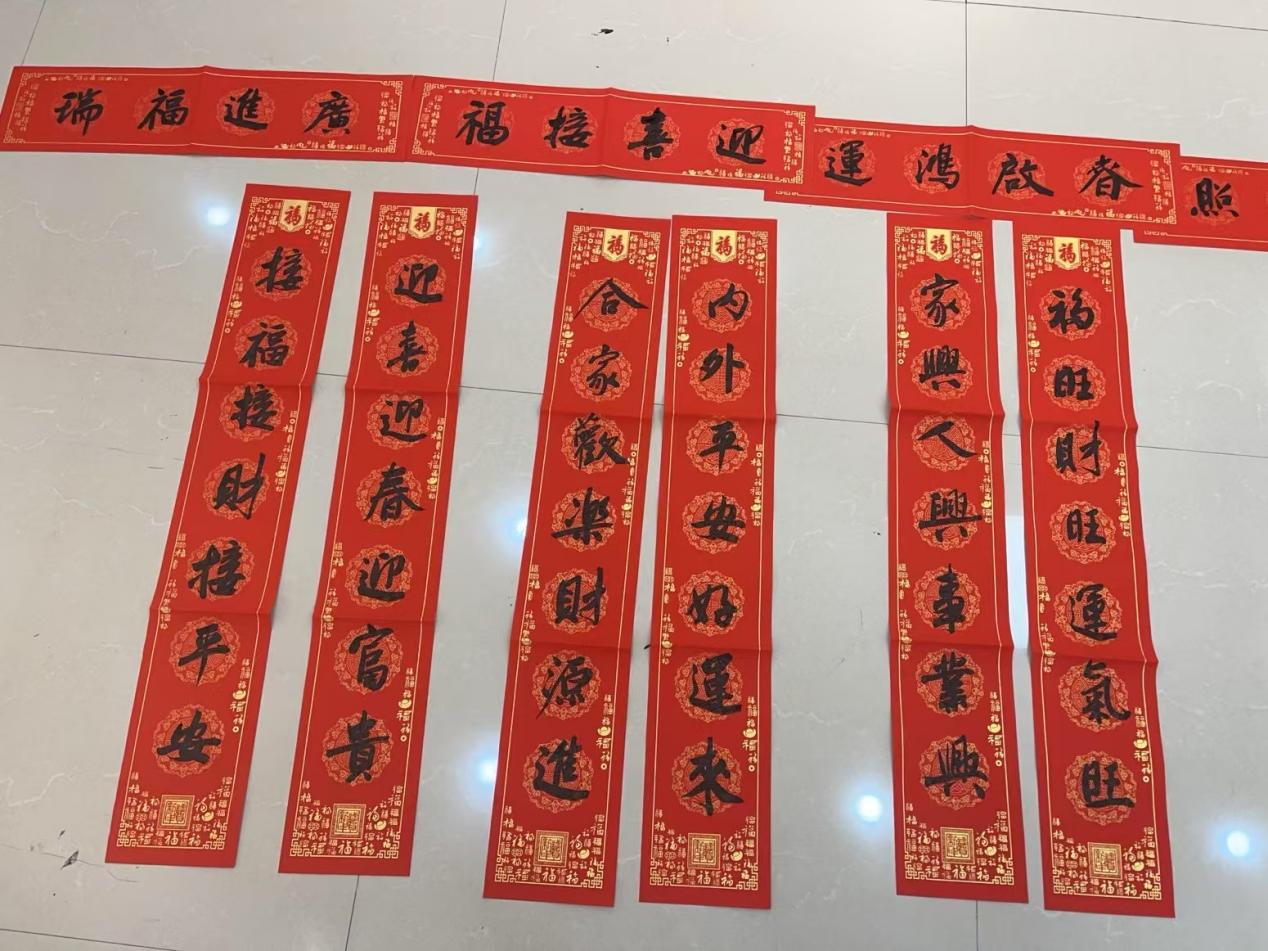 照
春啟鴻運
迎喜接福
廣進福瑞
福
福旺財旺運氣旺
福
家興人興事業興
福
內外平安好運來
福
合家歡樂財源進
福
迎喜迎春迎富貴
福
接福接財接平安